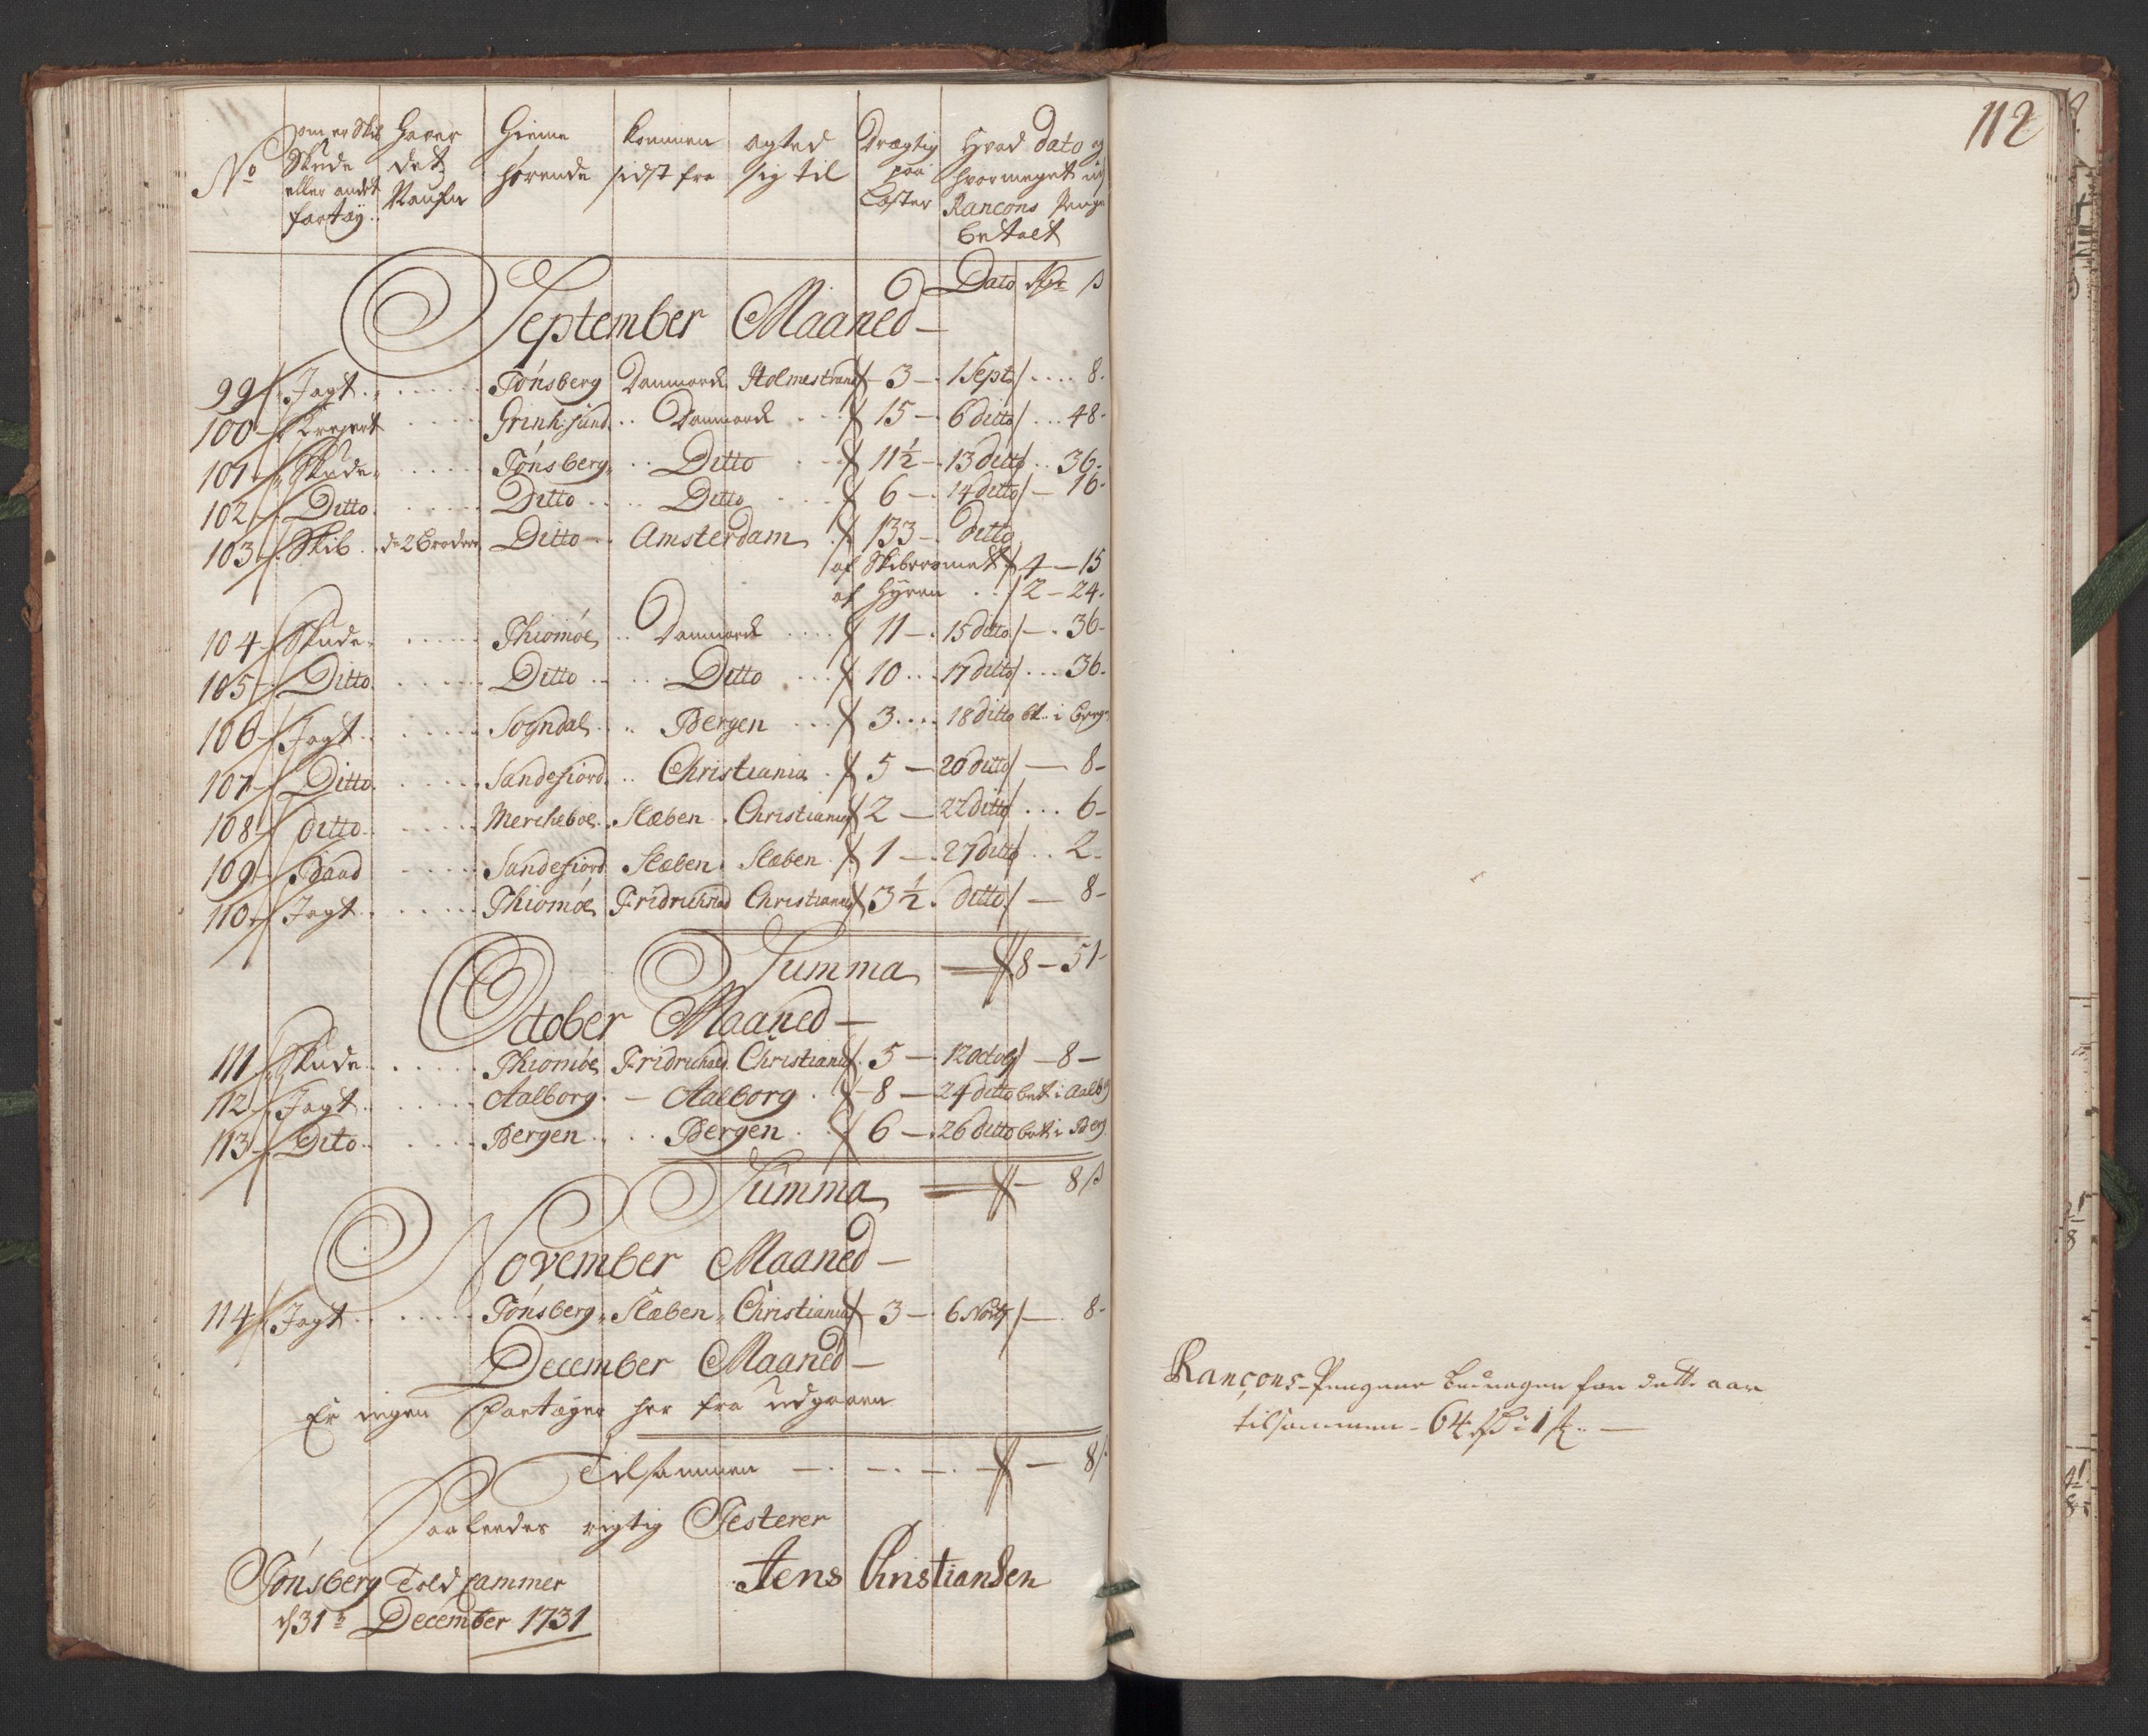 112
No
om er Skib Skude eller andet Fartøy
Haver det Naufn
Hieme hørende
kommen sidst fra
agted sig til
Drægtig paa Læster
Hvad dato og hvormeget udj Rancons Penge betalt
Dato Rdr ß
September Maaned
99 Jagt Tönsberg Danmark Holmestrand 3 1 Sept 8
100 Krejert Danmark 15 6 ditto 48
101 Skude Tönsberg Ditto 11½ 13 ditto 36
102 Ditto Ditto Ditto 6 14 ditto 16
103 Skib de 2 Brødre Ditto Amsterdam 133 ditto
af Skibrommet 4 15
af Hyren 2 24
104 Skude Thiömöe Danmark 11 15 ditto 36
105 Ditto Ditto Ditto 10 17 ditto 36
106 Jagt Sogndal Bergen 3 18 ditto bt i Berg
107 Ditto Sandefiord Christiania 5 20 ditto 8
108 ditto Slæben Christiania 2 22 ditto 6
109 Baad Sandefiord Slæben Slæben 1 27 ditto 2
110 Jagt Thiömöe Fridrichstad Christiania 3½ ditto 8
Summa 8 51
October Maaned
111 Skude Thiömöe Fridrichald Christiania 5 12 octobr 8
112 Jagt Aalborg Aalborg 8 24 ditto bet i Aalb
113 Dito Bergen Bergen 6 26 ditto bet i Berg
Summa 8 ß
November Maaned
114 Jagt Tönsberg Slæben Christiania 3 6 Novbr 8
December Maaned
Er ingen Fartøyer her fra udgaaen
Tilsammen 8 ß
Saaleedes rigtig Testerer
Tönsberg Told Cammer
d 31 December 1731
Jens Christiansen
Rançons-Pengene bedragen for dette aar
tilsammen 64 rd 1 ß